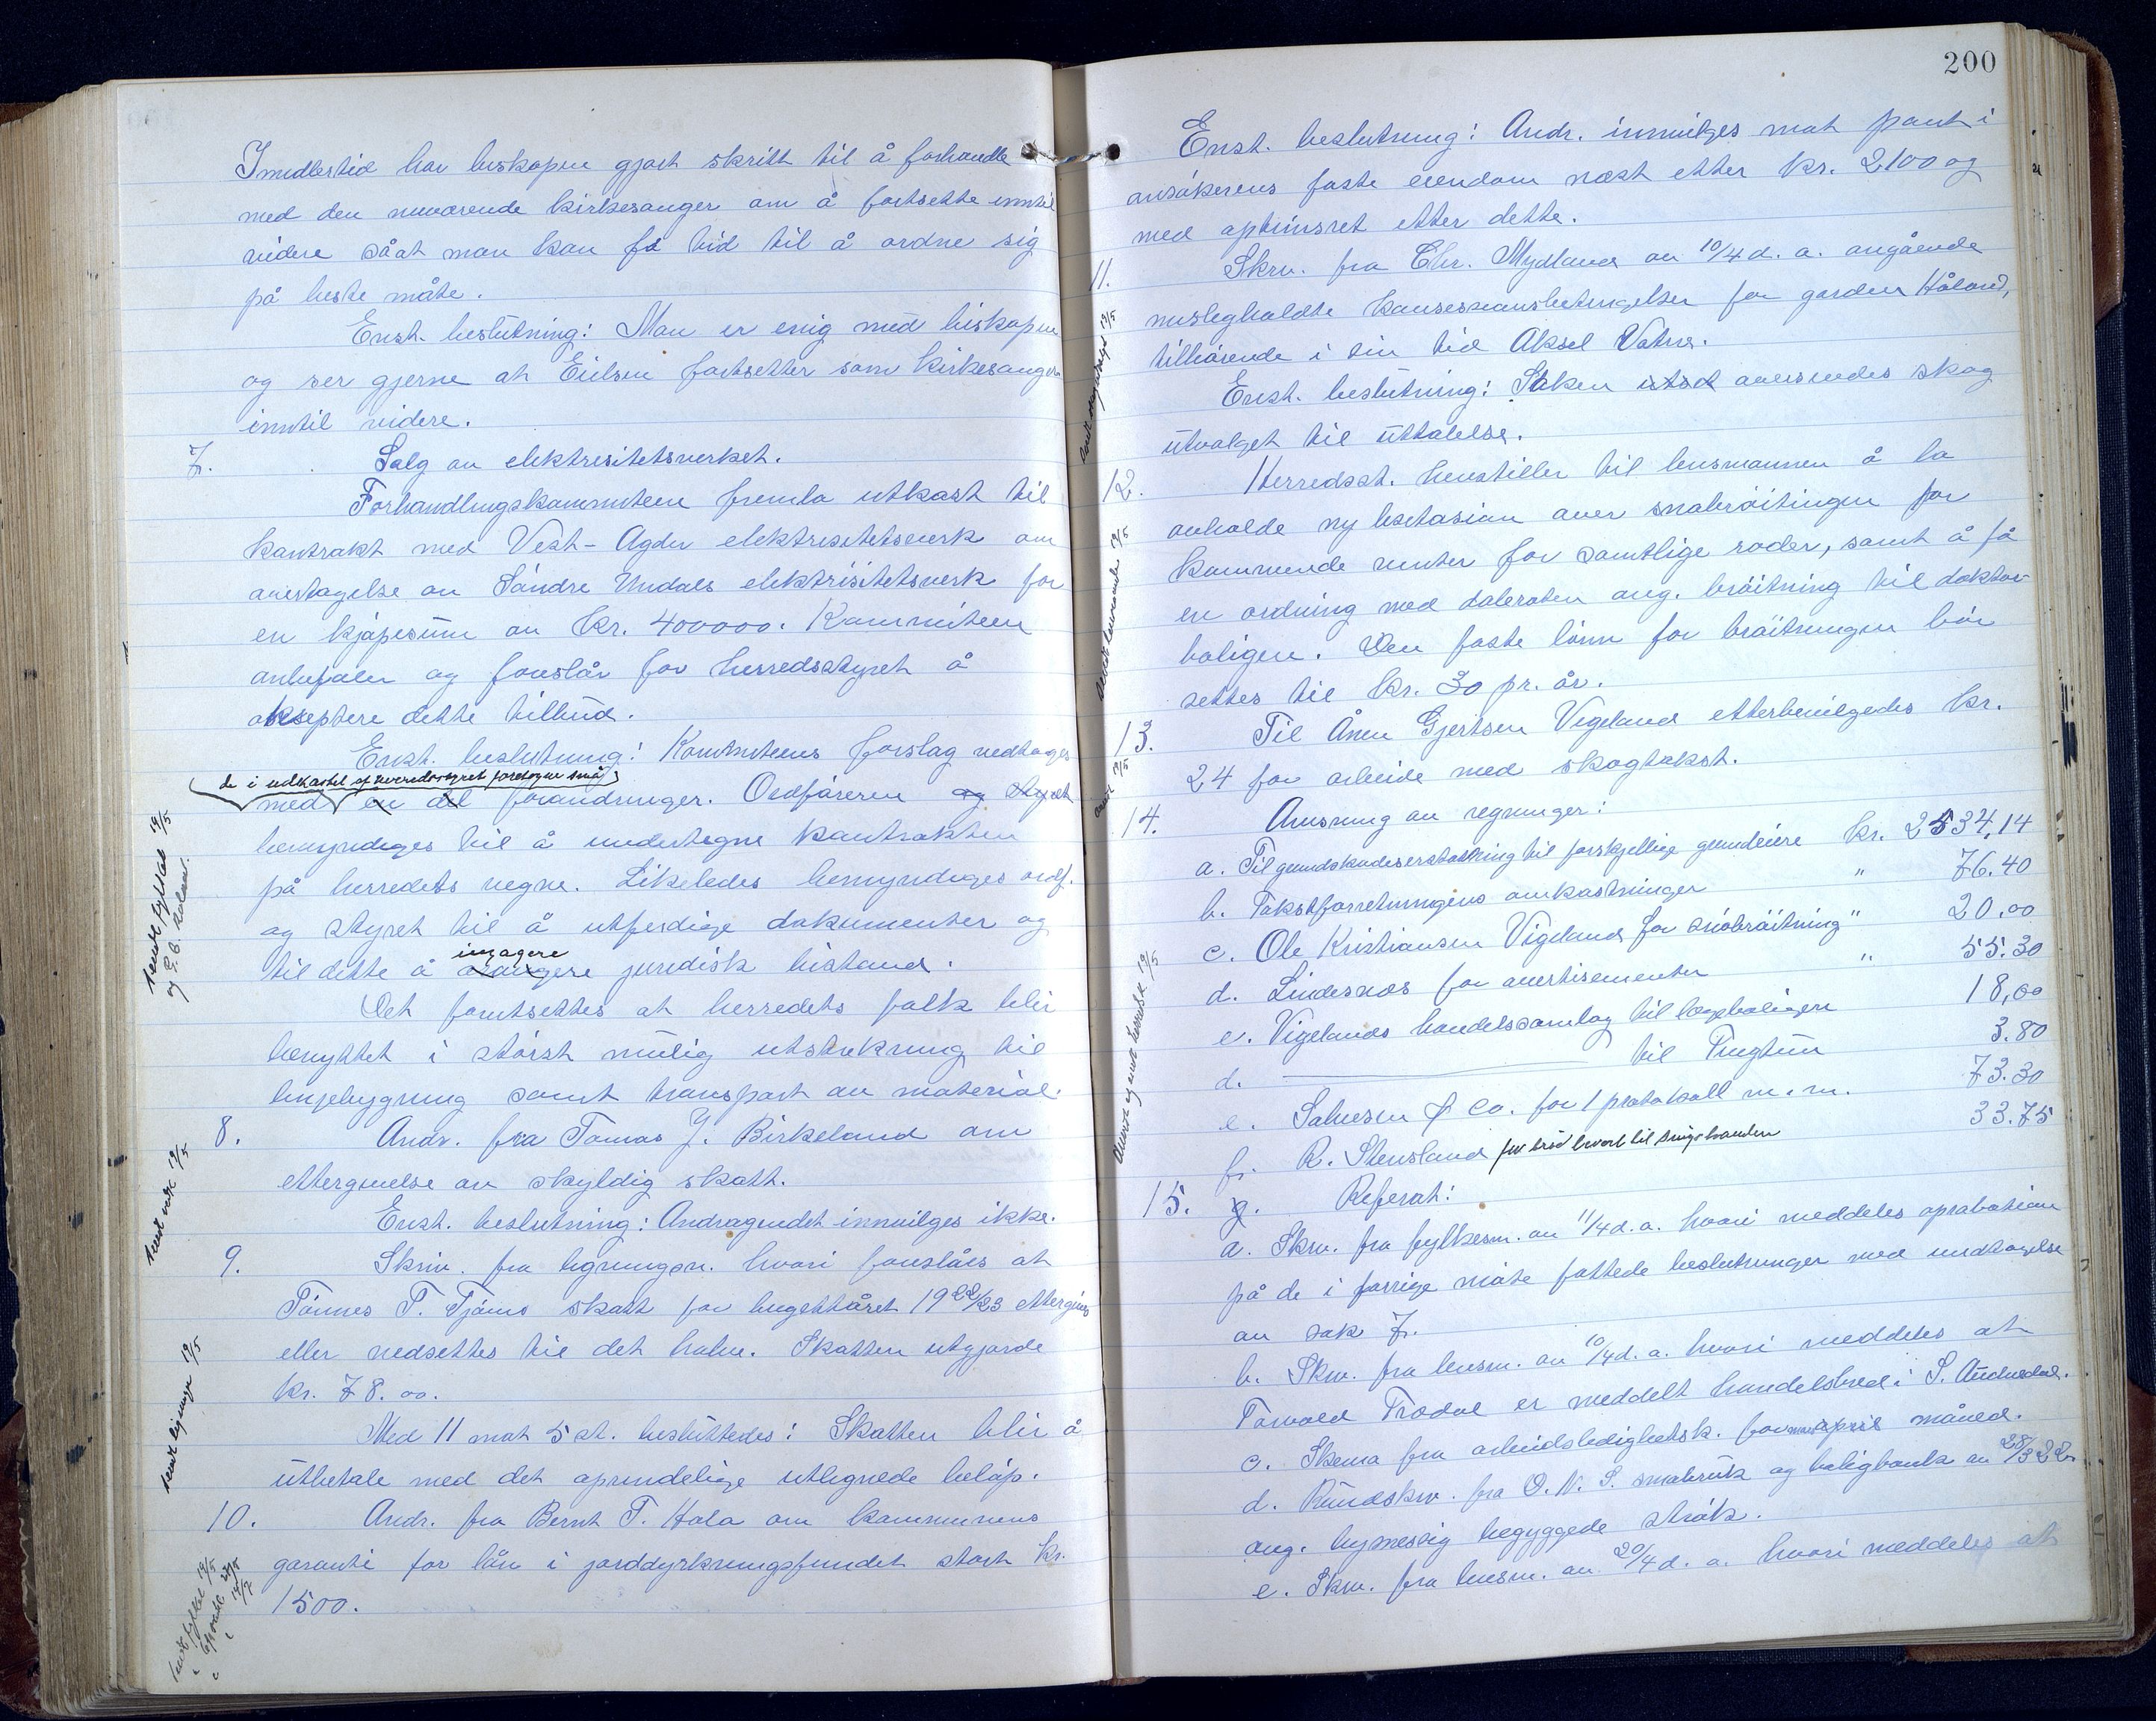 Imidlertid har biskopen gjort skritt til å forhandle
med den nuværende kirkesanger om å fortsette inntil
videre såat man kan få tid til å ordne sig
på beste måte.
Enst. beslutning: Man er enig med biskopen
og ser gjerne at Eilsen fortsetter som kirkesanger
inntil videre.
7. Salg av elektrisitetsverket.
Forhandlingskommiteen fremla utkast til
kontrakt med Vest-Agder elektrisitetsverk om
overtagelse av Søndre Undals elektrisitetsverk for
en kjøpesum av kr. 400000. Kommiteen
anbefaler og foreslår for herredsstyret å
akseptere dette tilbud.
Enst. beslutning: Komiteens forslag vedtages
de i udkastet af herredsstyret foretagne små
med en del forandringer. Ordføreren og styret
bemyndiges til å undertegne kontrakten
på herredets vegne. Likeledes bemyndiges ordf.
og styret til å utferdige dokumenter og
ingagere
til dette å arangere juredisk bistand.
Det forutsettes at herredets folk blir
benyttet i størst mulig utstrekning til
linjebygning samt transport av material.
sendt fylket 19/5
8. Andr. fra Tomas J. Birkeland om
ettergivelse av skyldig skatt.
Enst. beslutning: Andragendet innvilges ikke.
sendt vedk 19/5
9. Skriv. fra ligningsn. hvori foreslåes at
Tønnes T. Tjøms skatt for bugettåret 1922/23 ettergives
eller nedsettes til det halve. Skatten utgjorde
kr. 78.00.
Med 11 mot 5 st. besluttedes: Skatten blir å
utbetale med det oprindelige utlignede beløp.
sendt ligningn 19/5
10. Andr. fra Bernt T. Hola om kommunens
garanti for lån i jorddyrkningsfundet stort kr.
1500.
sendt fylket 19/5
200
Enst. beslutning: Andr. innvilges mot pant i
ansøkerens faste eiendom næst etter kr. 2100 og
med optrinsret etter dette.
11. Skrv. fra Chr. Mydland av 10/4 d. a. angående
misligholdte konsesjonsbetingelser for garden Håland,
tilhørende i sin tid Aksel Vatne.
Enst. beslutning: Saken oversendes skog
utvalget til uttalelse.
12. Herredsst. henstiller til lensmannen å la
avholde ny lisitasjon over snebrøitingen for
kommende vinter for samtlige roder, samt å få
en ordning med daleroten ang. brøitning til doktor
boligen. Den faste lønn for brøitningen bør
settes til kr. 30 pr. år.
sendt lensmann 19/5
13. Til Ånen Gjertsen Vigeland etterbevilgedes kr.
24 for arbeide med skogtakst.
14. Anvisning av regninger:
a. Til grundskadeserstattning til forskjellige grundeiere kr. 2534,14
b. Takstforretningens omkostninger " 76.40
c. Ole Kristiansen Vigeland for snøbrøitning " 20.00
d. Lindesnes for avertisementer " 55.30
e. Vigelands handelssamlag til lægeboligen 18,00
d. ——— til Tingtun 3.80
e. Salvesen & Co. for 1 protokoll m. m. 73.30
f. R. Stensland for 33.75
15. g. Referat:
a. Skrv. fra fylkesm. av 11/4 d. a. hvori meddeles aprobation
på de i forrige møte fattede beslutninger med undtagelse
av sak 7.
b. Skrv. fra lensm. av 10/4 d. a. hvori meddeles at
Torvald Trædal er meddelt handelsbred i S. Audnedal.
c. Skema fra arbeidsledighetsk. for april måned.
d. Rundskrv. fra D. N. S. småbruk og boligbank av 28/3 22
ang. bymessig begyggede strøk.
e. Skrv. fra lensm. av 20/4 d. a. hvori meddeles at